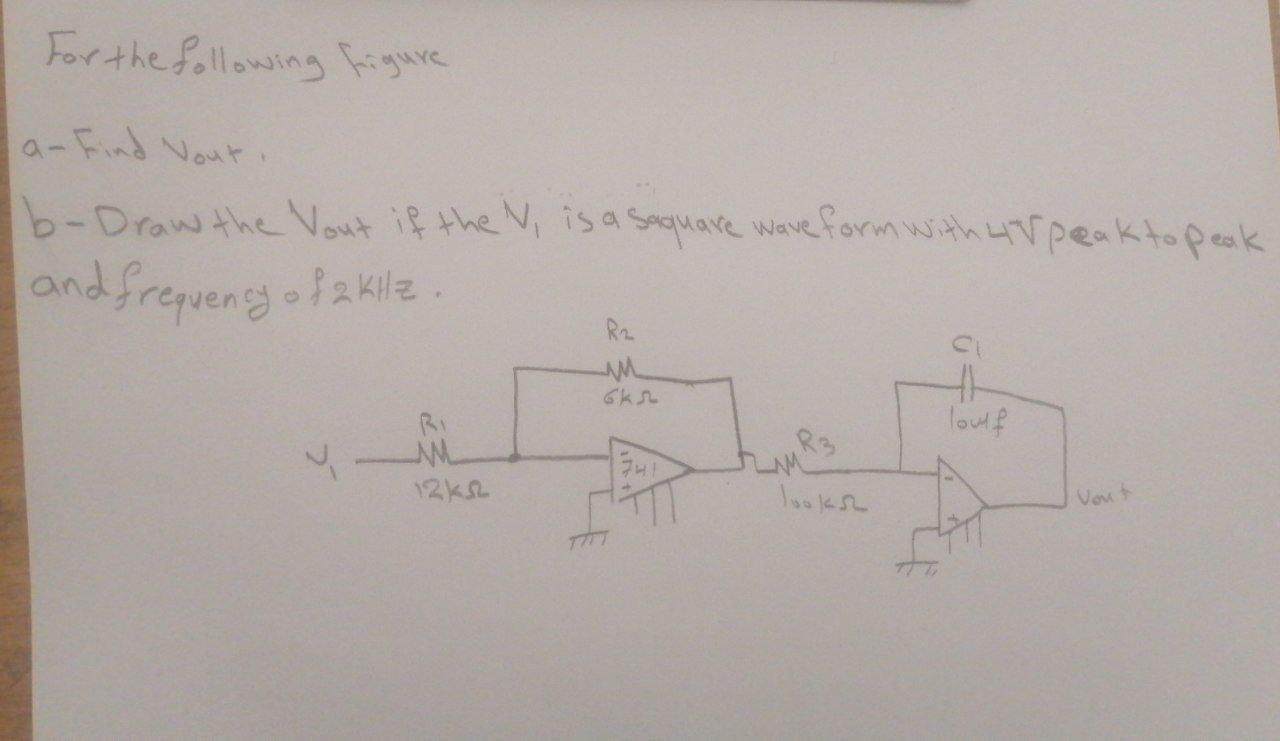 For the following figure
a- Find Vout.
b- Draw the Vout if the V1 is a saquare waveform with 4V peak to peak
and frequency of 2kHz.
R2
6kΩ
C1
R1
V1
12kΩ
-
741
+
R3
100kΩ
-
+
Vout